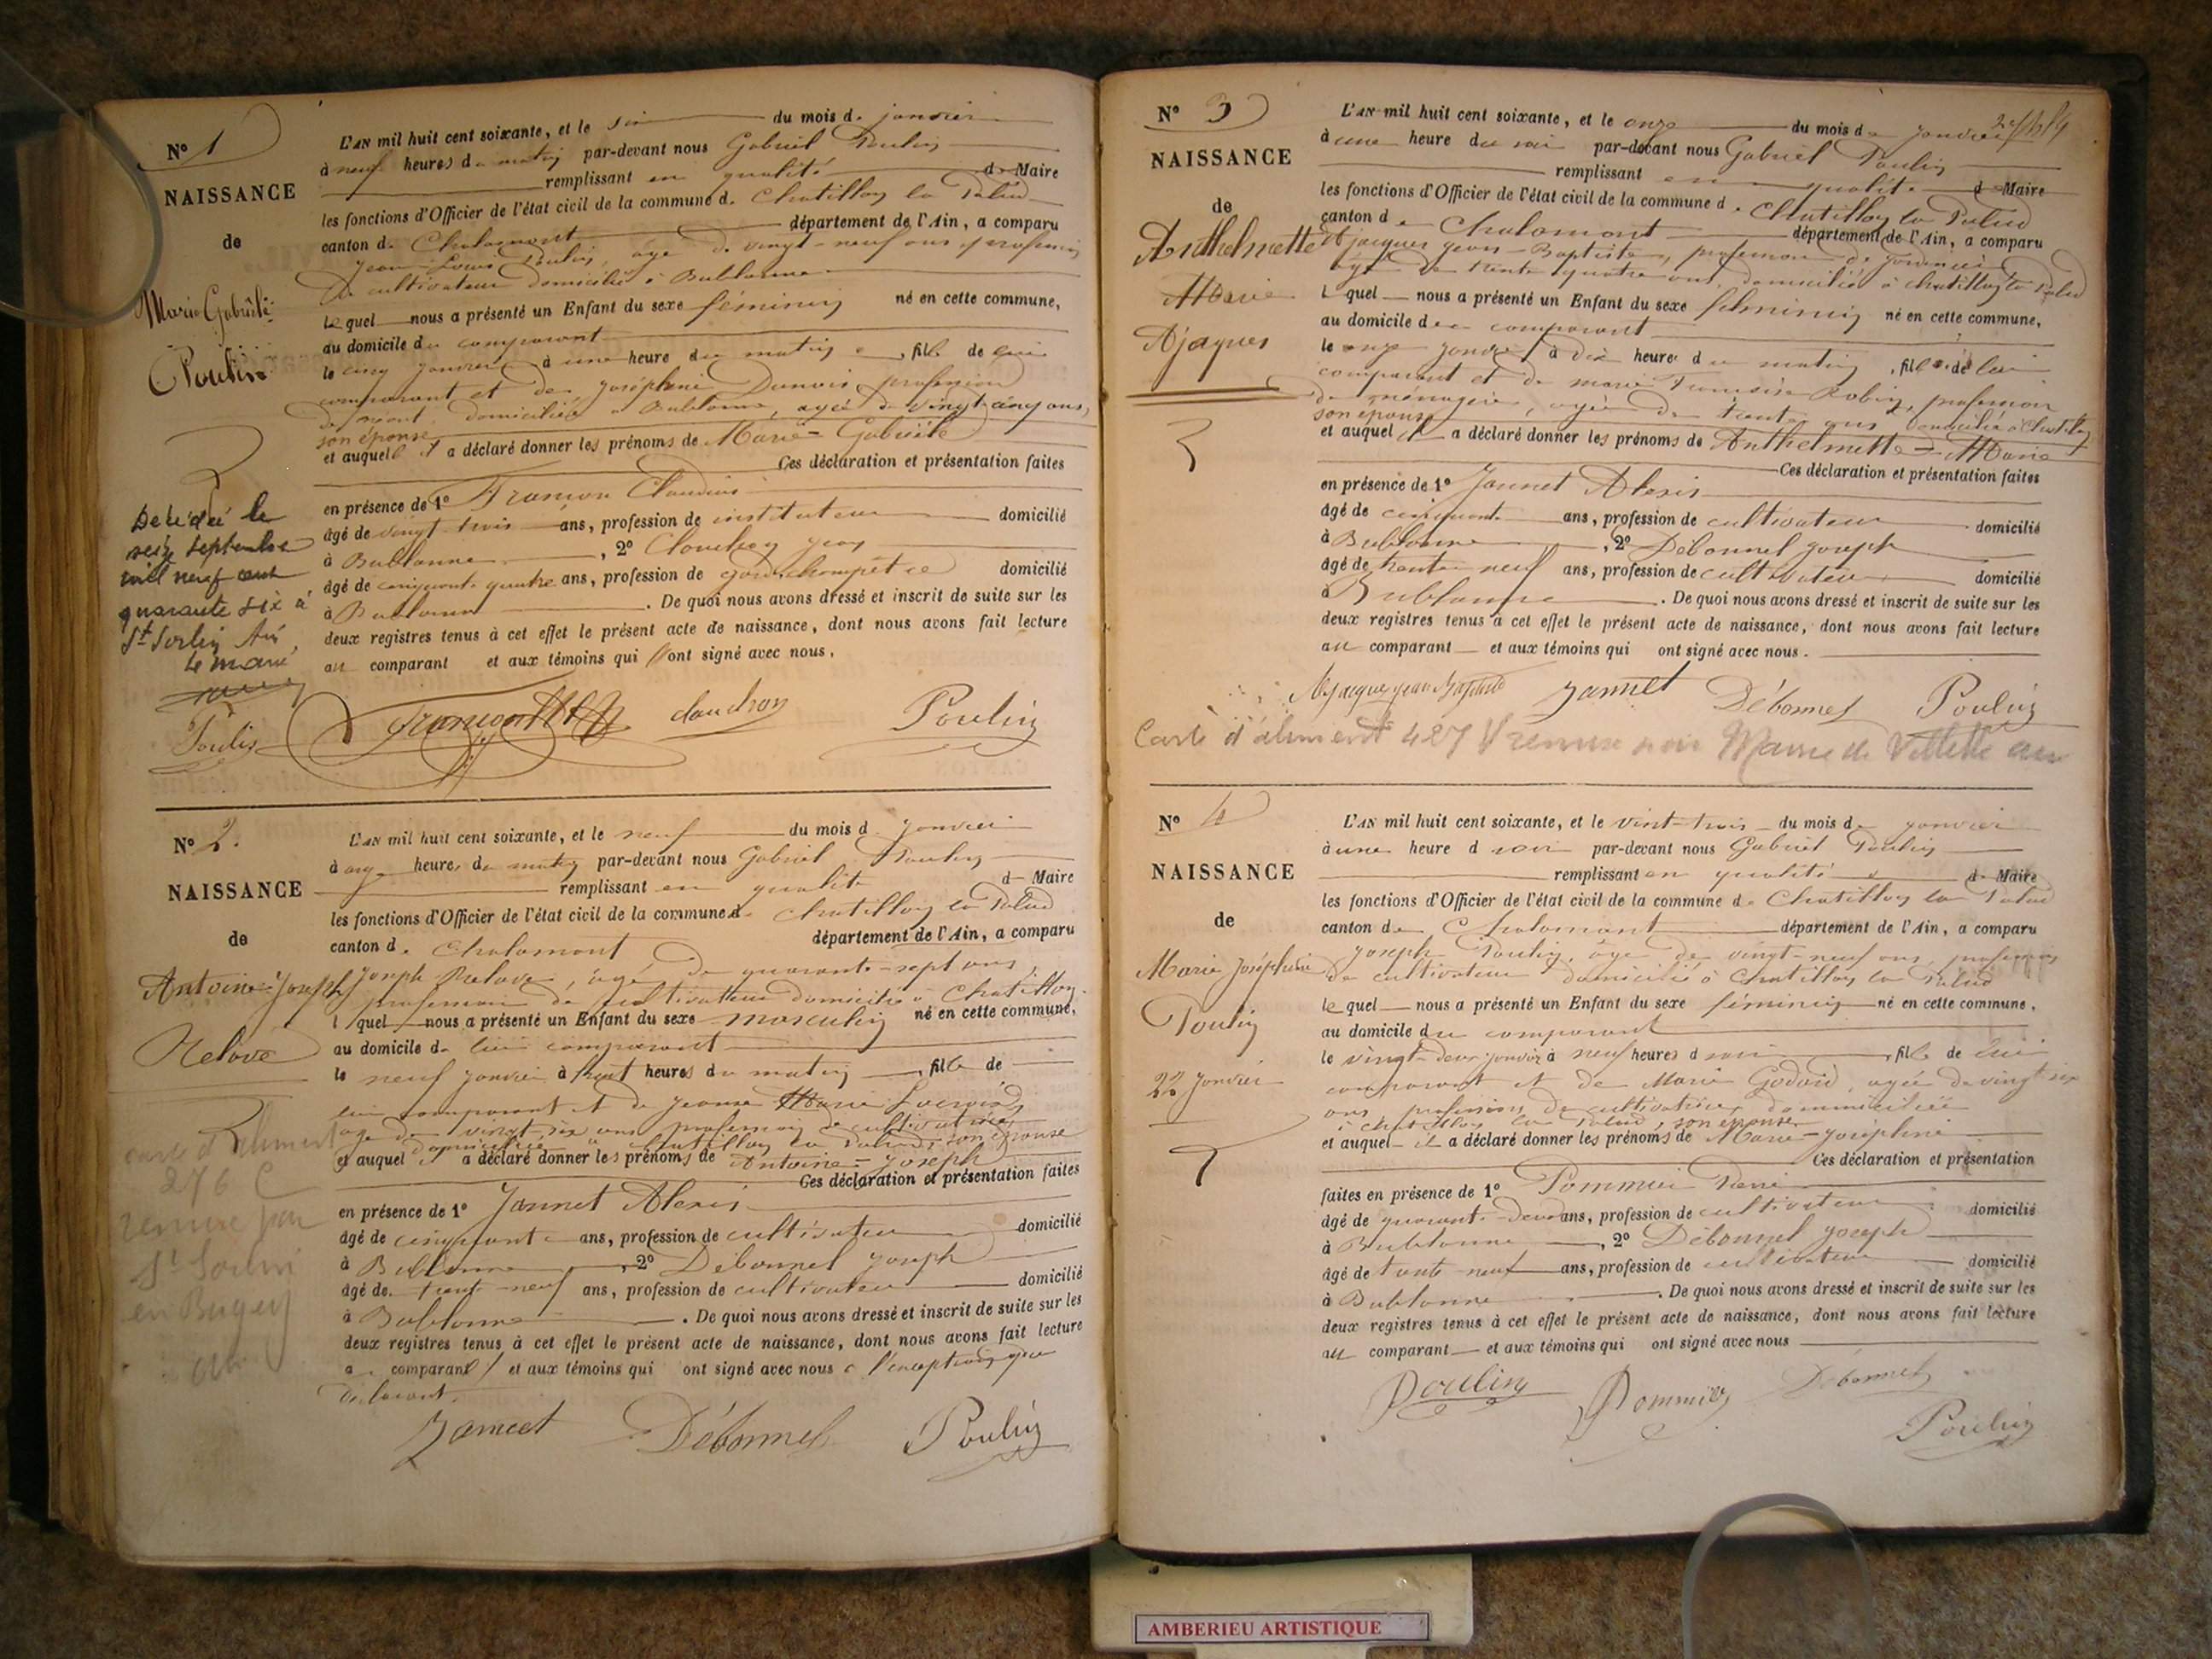 N° 1
NAISSANCE
de
Marie Gabrièle
Poulin
Décédée le
seize septembre
mill neuf cent
quarante six à
St Sorlin Ain,
le maire
L'AN mil huit cent soixante, et le six du mois d. janvier
à neuf heures du matin par-devant nous Gabriel Poulin
remplissant en qualité d Maire
les fonctions d'Officier de l'état civil de la commune d. Chatillon la Palud
canton d. Chalamont département de l'Ain, a comparu
Jean Louis Poulin, âgé de vingt-neuf ans, profession
de cultivateur domicilié à Bublanne
Lequel nous a présenté un Enfant du sexe féminin né en cette commune,
au domicile du comparant
le cinq janvier à une heure du matin, fille de lui
comparant et de Joséphine Dunois profession
domiciliée à Bublanne, agée de vingt cinq ans,
son épouse
et auquel il a déclaré donner les prénoms de Marie-Gabrièle
Ces déclaration et présentation faites
en présence de 1° Françon Claudius
âgé de vingt trois ans, profession de instituteur domicilié
à Bublanne, 2° Claudron Jean
âgé de cinquante quatre ans, profession de garde champêtre domicilié
à Bublanne. De quoi nous avons dressé et inscrit de suite sur les
deux registres tenus à cet effet le présent acte de naissance, dont nous avons fait lecture
au comparant et aux témoins qui ont signé avec nous.
Poulin Françon claudron Poulin
N° 2.
NAISSANCE
de
Antoine-Joseph
Relave
carte d'aliment
276 C
remise par
St Sorlin
en Bugey
L'AN mil huit cent soixante, et le neuf du mois d. janvier
à onze heures du matin par-devant nous Gabriel Poulin
remplissant en qualité d Maire
les fonctions d'Officier de l'état civil de la commune d. Chatillon la Palud
canton d. Chalamont département de l'Ain, a comparu
Joseph Relave, âgé de quarante-sept ans,
profession de cultivateur domicilié à Chatillon
l quel nous a présenté un Enfant du sexe masculin né en cette commune,
au domicile de lui comparant
le neuf janvier à huit heures du matin, fils de
lui comparant et de Jeanne Marie
age de vingt six ans, profession de cultivatrice,
domiciliée à chatillon la Palud, son épouse
et auquel il a déclaré donner les prénoms de Antoine-Joseph
Ces déclaration et présentation faites
en présence de 1° Jannet Alexis
âgé de cinquante ans, profession de cultivateur domicilié
à Bublanne, 2° Débonnel joseph
âgé de trente-neuf ans, profession de cultivateur domicilié
à Bublanne. De quoi nous avons dressé et inscrit de suite sur les
deux registres tenus à cet effet le présent acte de naissance, dont nous avons fait lecture
a comparant et aux témoins qui ont signé avec nous à l'exception que
Jannet Débonnel Poulin
N° 3
NAISSANCE
de
Anthelmette
Marie
Ajaques
L'AN mil huit cent soixante, et le onze du mois de janvier
à une heure du soir par-devant nous Gabriel Poulin
remplissant en qualité d Maire
les fonctions d'Officier de l'état civil de la commune d. Chatillon la Palud
canton de Chalamont département de l'Ain, a comparu
Ajacques Jean-Baptiste, profession de
âgé de trente quatre ans, domicilié à chatillon la Palud
l quel nous a présenté un Enfant du sexe féminin né en cette commune,
au domicile de comparant
le onze janvier à dix heures du matin, fille de lui
comparant et de marie Françoise Robin, profession
de ménagère, agée de trente ans domiciliée à Chatillon
son épouse
et auquel il a déclaré donner les prénoms de Anthelmette-Marie
Ces déclaration et présentation faites
en présence de 1° Jannet Alexis
âgé de cinquante ans, profession de cultivateur domicilié
à Bublanne, 2° Débonnel joseph
âgé de trente neuf ans, profession de cultivateur domicilié
à Bublanne. De quoi nous avons dressé et inscrit de suite sur les
deux registres tenus à cet effet le présent acte de naissance, dont nous avons fait lecture
au comparant et aux témoins qui ont signé avec nous.
Ajacques jean Baptiste Jannet Débonnel Poulin
Carte d'aliment 427 V remise par Mairie de Villette
N° 4
NAISSANCE
de
Marie Joséphine
Poulin
22 janvier
L'AN mil huit cent soixante, et le vint-trois du mois de janvier
à une heure d soir par-devant nous Gabriel Poulin
remplissant en qualité d Maire
les fonctions d'Officier de l'état civil de la commune d. Chatillon la Palud
canton de Chalamont département de l'Ain, a comparu
Joseph Poulin, âgé de vingt-neuf ans, profession
de cultivateur domicilié à Chatillon la Palud
lequel nous a présenté un Enfant du sexe féminin né en cette commune,
au domicile du comparant
le vingt-deux janvier à neuf heures d soir, fille de lui
comparant et de Marie Godard, agée de vingt six
ans, profession de cultivatrice, domiciliée
à chatillon la Palud, son épouse
et auquel il a déclaré donner les prénoms de Marie-joséphine
Ces déclaration et présentation
faites en présence de 1° Pommier Pierre
âgé de quarante-deux ans, profession de cultivateur domicilié
à Bublanne, 2° Débonnel joseph
âgé de trente neuf ans, profession de cultivateur domicilié
à Bublanne. De quoi nous avons dressé et inscrit de suite sur les
deux registres tenus à cet effet le présent acte de naissance, dont nous avons fait lecture
au comparant et aux témoins qui ont signé avec nous
Poulin Pommier Débonnel
Poulin
AMBERIEU ARTISTIQUE